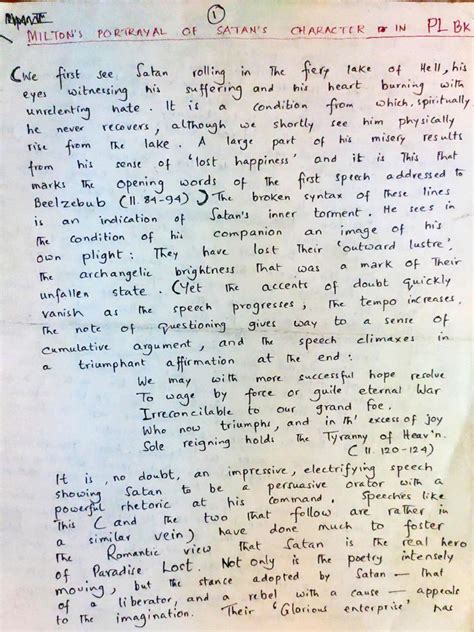 1
MILTON'S PORTRAYAL OF SATAN'S CHARACTER IN PL BK
(We first see Satan rolling in the fiery lake of Hell, his
eyes witnessing his suffering and his heart burning with
unrelenting hate. It is a condition from which, spiritually,
he never recovers, although we shortly see him physically
rise from the lake. A large part of his misery results
from his sense of 'lost happiness' and it is this that
marks the opening words of the first speech addressed to
Beelzebub (ll. 84-94)) The broken syntax of these lines
is an indication of Satan's inner torment. He sees in
the condition of his companion an image of his
own plight: They have lost their 'outward lustre',
the archangelic brightness that was a mark of their
unfallen state. (Yet the accents of doubt quickly
vanish as the speech progresses, the tempo increases,
the note of questioning gives way to a sense of
cumulative argument, and the speech climaxes in
a triumphant affirmation at the end:
We may with more successful hope resolve
To wage by force or guile eternal War
Irreconcilable to our grand foe.
Who now triumphs, and in th' excess of joy
Sole reigning holds the Tyranny of Heav'n.
(ll. 120-124)
It is, no doubt, an impressive, electrifying speech
showing Satan to be a persuasive orator with a
powerful rhetoric at his command. Speeches like
this (and the two that follow are rather in
a similar vein) have done much to foster
the Romantic view that Satan is the real hero
of Paradise Lost. Not only is the poetry intensely
moving, but the stance adopted by Satan — that
of a liberator, and a rebel with a cause — appeals
to the imagination. Their 'Glorious enterprise' has